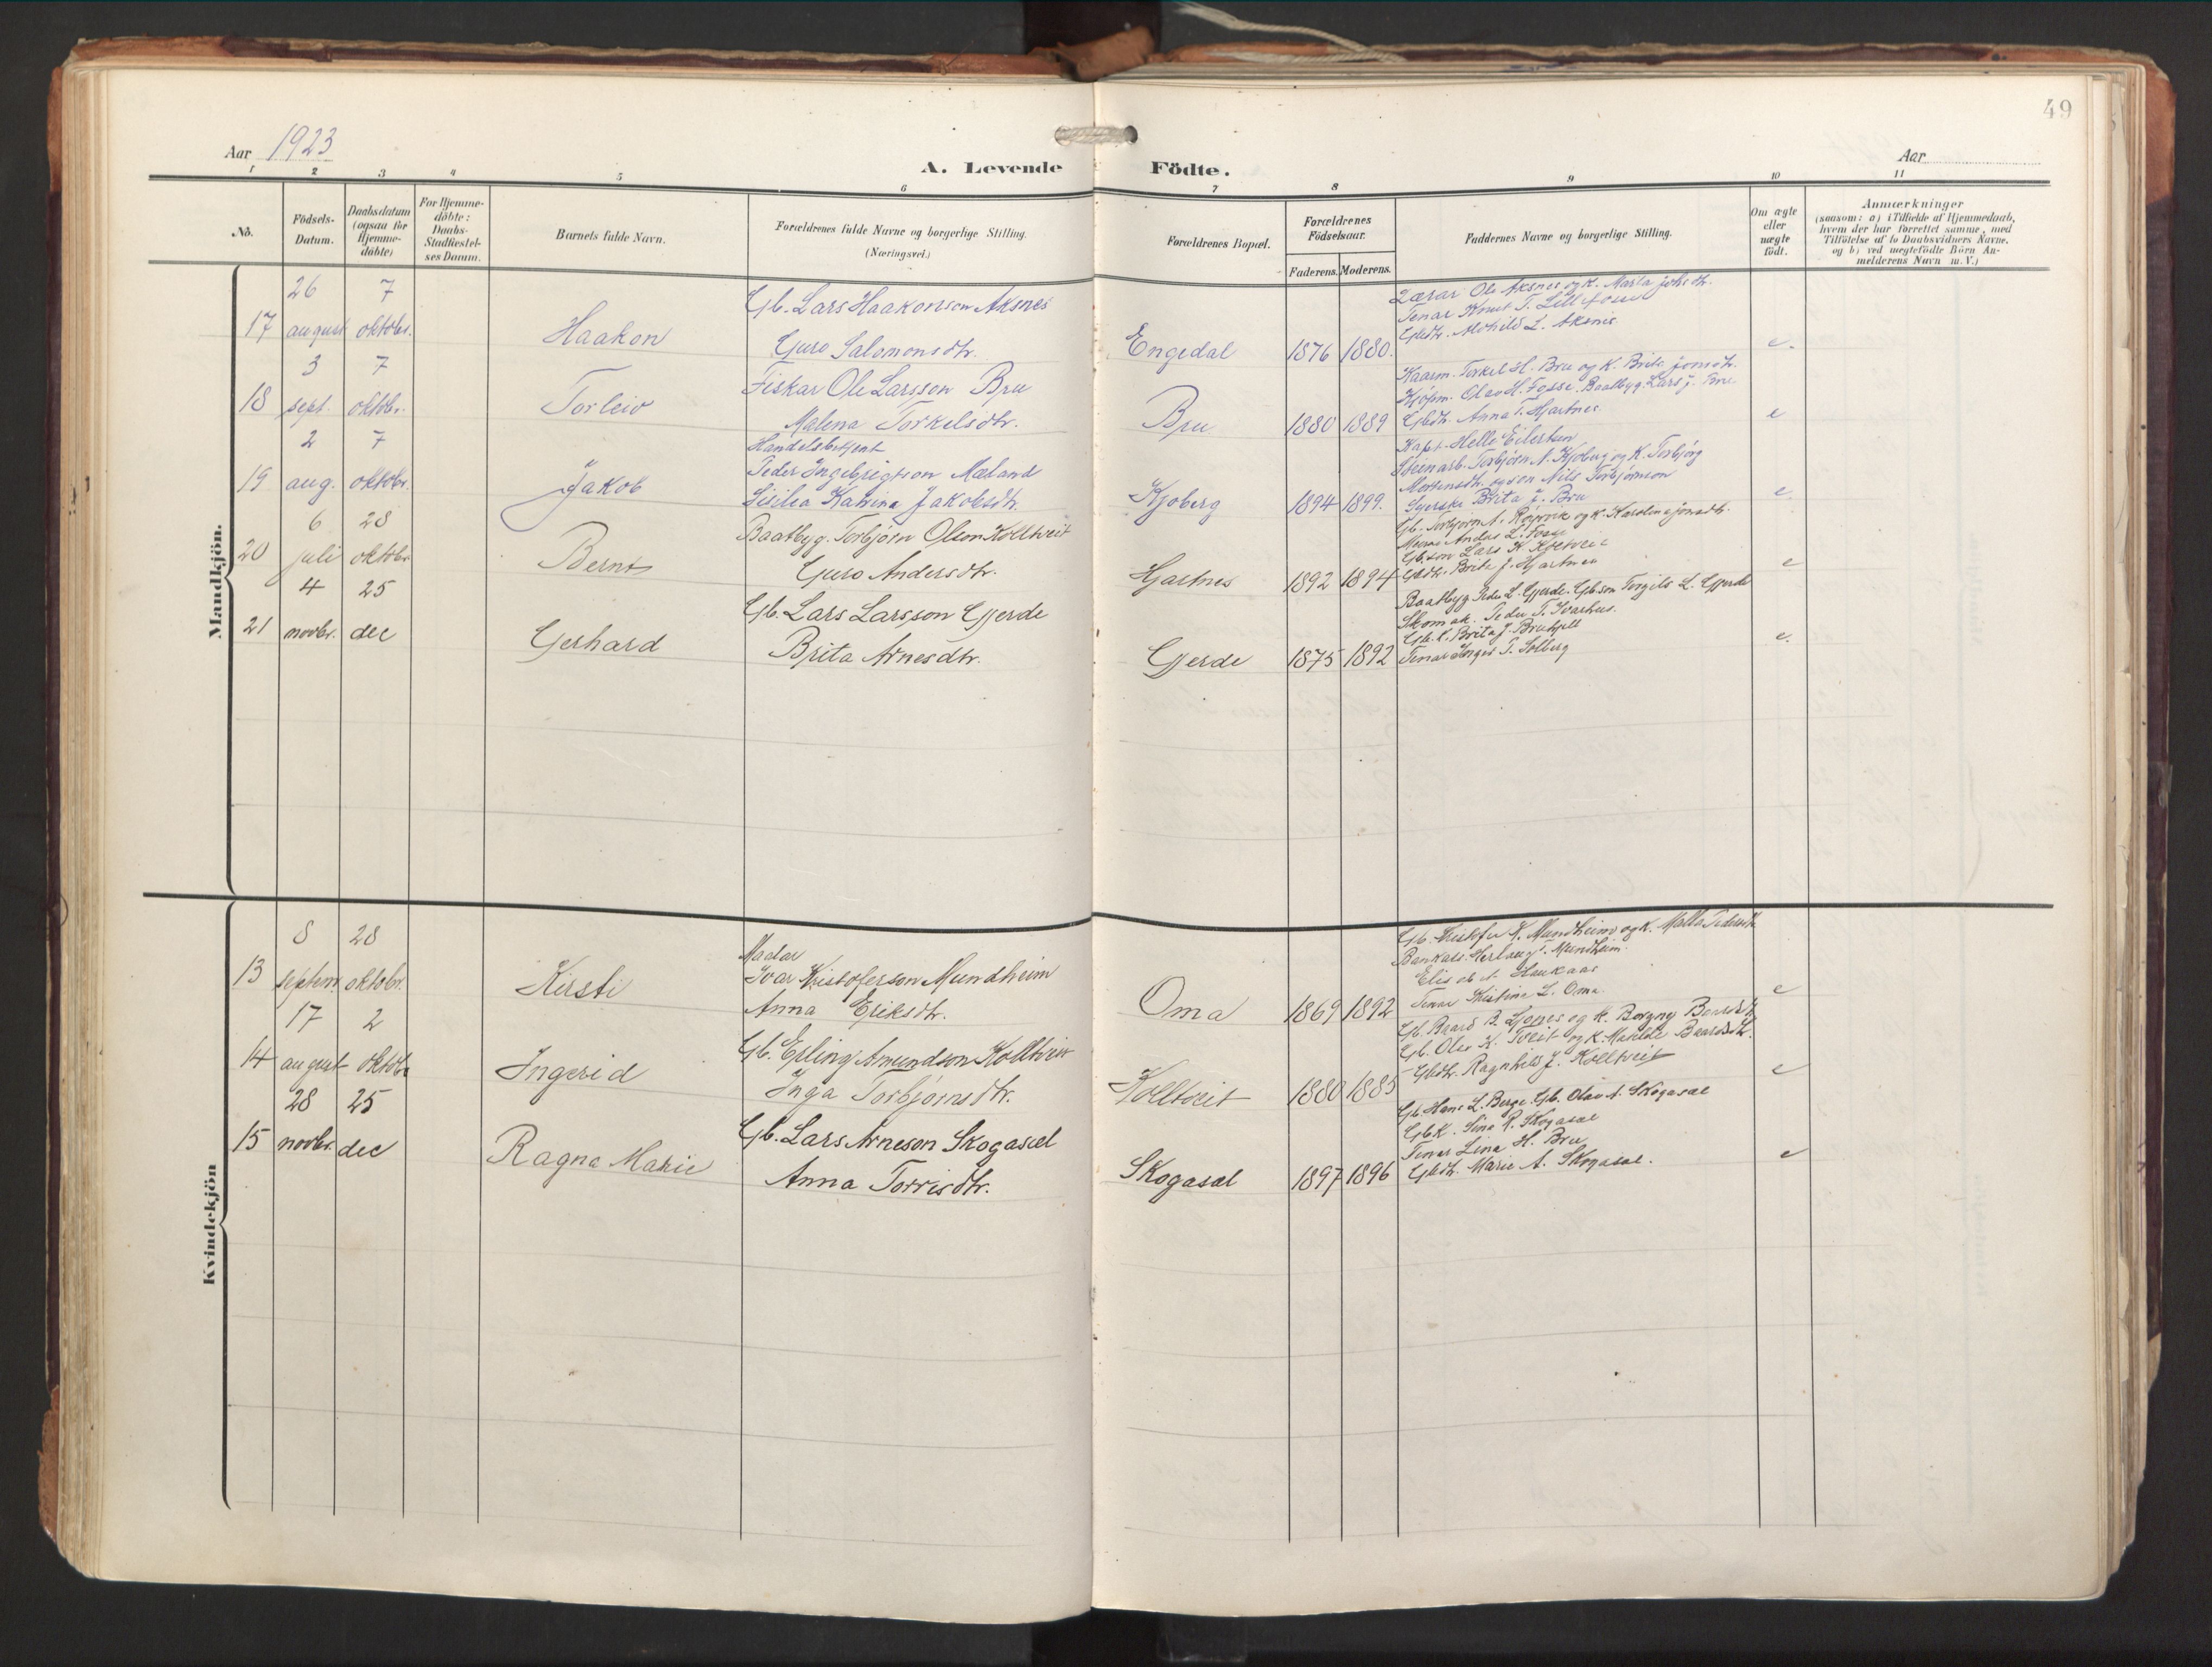 49
Aar 1923
A. Levende Födte.
Aar
1 2 3 4 5 6 7 8 9 10 11
No.
Födsels-Datum.
Daabsdatum (ogsaa for Hjemme-döbte)
For Hjemme-döbte: Daabs-Stadfæstel-ses Datum.
Barnets fulde Navn.
Forældrenes fulde Navne og borgerlige Stilling.
(Næringsvei.)
Forældrenes Bopæl.
Forældrenes Födselsaar.
Faderens. Moderens.
Faddernes Navne og borgerlige Stilling.
Om ægte eller uægte födt.
Anmærkninger
(saasom: a) i Tilfælde af Hjemmedaab,
hvem der har forrettet samme, med
Tilföielse af to Daabsvidners Navne.
og b) ved uegtefödte Börn An-
melderens Navn m. V.)
Mandkjön.
26 7
17 august oktobr.
Haakon
Gb. Lars Haakonson Aksnes
Guro Salomonsdtr.
Engedal 1876 1880.
Lærar Ole Aksnes og k. Marta
Tenar Knut T.
Gbdtr. L. Aksnes
e.
3 7
18 sept. oktobr.
Torleiv
Fiskar Ole Larsson Bru
Malena Torkelsdtr.
Bru 1880 1889
Kaarm. Torkel H. Bru og k. Brita Jonsdtr.
Kjøpm. Olav H. Fosse. Baatbyg. Lars J. Bru
Gbdtr. Anna T. Hjartnes.
e
2 7
19 aug. oktobr.
Jakob
Handelsbetjent
Peder Ingebrigtson Mæland
Sisilia Katrina Jakobsdtr.
Kjoberg 1894 1899.
Kapt. Helle Eilertsen
Steinarb. Torbjørn N. Kjoberg og K. Torbjørg
Mortensdtr. og son Nils Torbjørnson
Syerske Brita J. Bru
e.
6 28
20 juli oktobr.
Bernt
Baatbyg. Torbjørn Olson Kolltveit
Guro Andersdtr.
Hjartnes 1892 1894
Gb. Torbjørn A. Røyrvik og K. Karolina Jonsdtr.
Anders L. Fosse
Gb.son Lars K. Kolltveit
Gbdtr. Brita J. Hjartnes
e
4 25
21 novbr. dec
Gerhard
Gb. Lars Larsson Gjerde
Brita Arnesdtr.
Gjerde 1875 1892
Baatbyg Peder L. Gjerde. Gb.son Torgils L. Gjerde
Skomak. Peder T. Ivarhus.
Gb. e. Brita J.
Tenar T. Solberg
e.
Kvindekjön
8 28
13 septem. oktobr.
Kirsti
Maalar
Ivar Kristoferson Mundheim
Anna Eriksdtr.
Oma 1869 1892
Gb. Kristofer K. Mundheim og k. Malla Pedersdtr.
Bankass. Herlaug T. Mundheim.
Haukaas
Tenar Kristina L. Oma.
e
17 2
14 august oktobr
Ingerid
Gb. Erling Amundson Kolltveit
Inga Torbjørnsdtr.
Kolltveit 1880 1885
Gb. Baard B. Ljones og k. Borgny Baardsdtr.
Gb. Olav K. Tveit og K. Matilde Baardsdtr.
Gbdtr. Ragnhild J. Kolltveit
e
28 25
15 novbr. dec
Ragna Marie
Gb. Lars Arneson Skogasæl
Anna Torrisdtr.
Skogasæl 1897 1896
Gb. Hans L. Berge. Gb. Olav A. Skogasæl
Gbk. Sina R. Skogasæl
Tenar Lina H. Bru
Gbdtr. Marie A. Skogasæl.
e